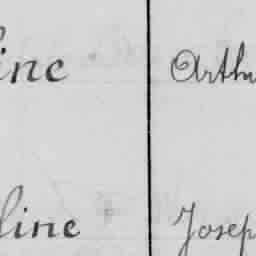 ine Arthu
line Josep